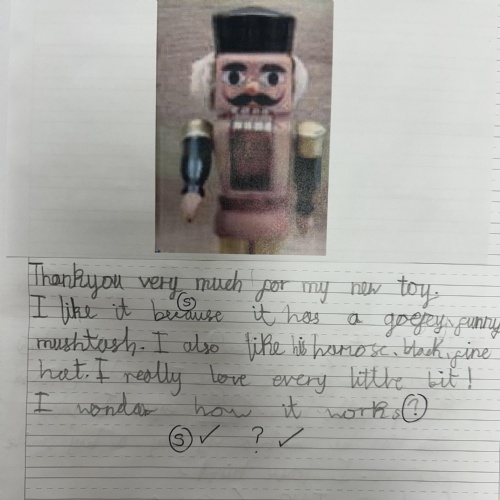 Thankyou very much for my new toy.
I like it because it has a goofey, funny
mushtash. I also like his black, fine
hat. I really love every little bit!
I wonder how it works?
Ⓢ ✓ ? ✓